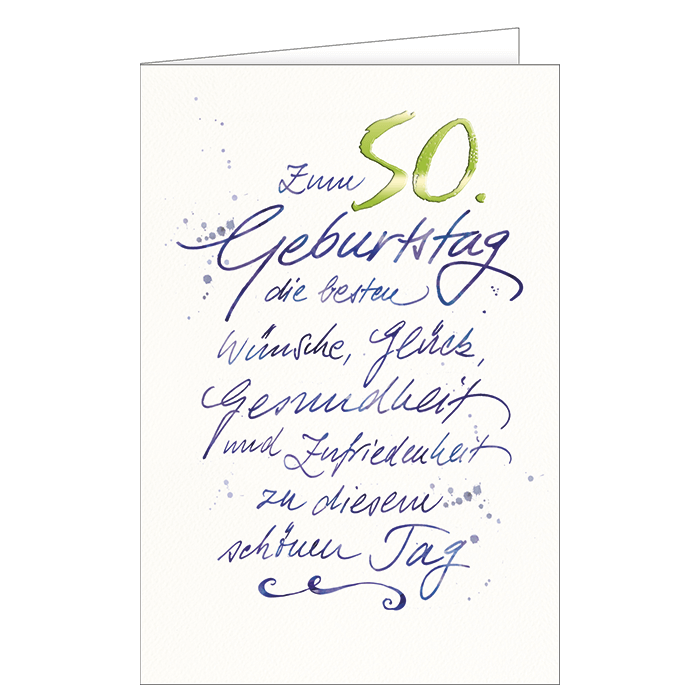 Zum 50.
Geburtstag
die besten
Wünsche, Glück,
Gesundheit
und Zufriedenheit
zu diesem
schönen Tag